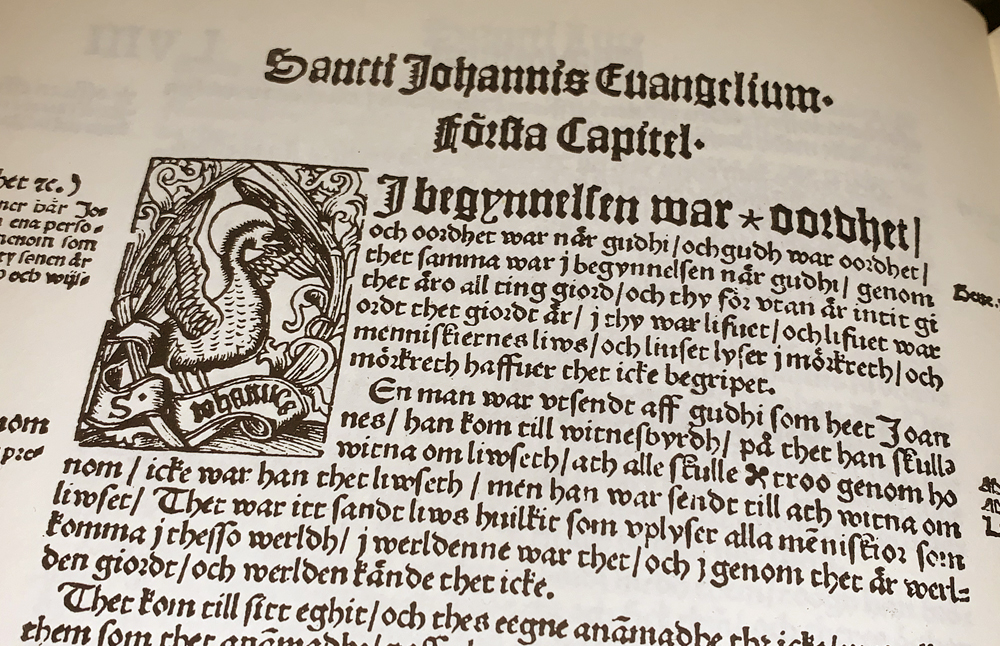 Sancti Johannis Euangelium.
Första Capitel.
J begynnelsen war * oordhet/
och oordhet war när gudhi/och gudh war oordhet/
thet samma war j begynnelsen när gudhi/ genom
thet äro all ting giord/och thy för vtan är intit gi
ordt thet giordt är/ j thy war lifuet/och lifuet war
menniskiernes liws/och liuset lyser j mörkreth/och
mörkreth haffuer thet icke begripet.
En man war vtsendt aff gudhi som heet Joan
nes/ han kom till witnesbyrdh/ på thet han skulle
witna om liwseth/ath alle skulle troo genom ho
nom/ icke war han thet liwseth/ men han war sendt till ath witna om
liwset/ Thet war itt sandt liws huilkit som vplyser alla mēniskior som
komma j thesso werldh/ j werldenne war thet/och j genom thet är werl=
den giordt/och werlden kände thet icke.
Thet kom till sitt eghit/och thes eegne anāmadhe thz icke/
them som thet anāmadhe/
het ⁊c.)
när Jo=
ena perso=
som
är
och wijse=
S. Johannes